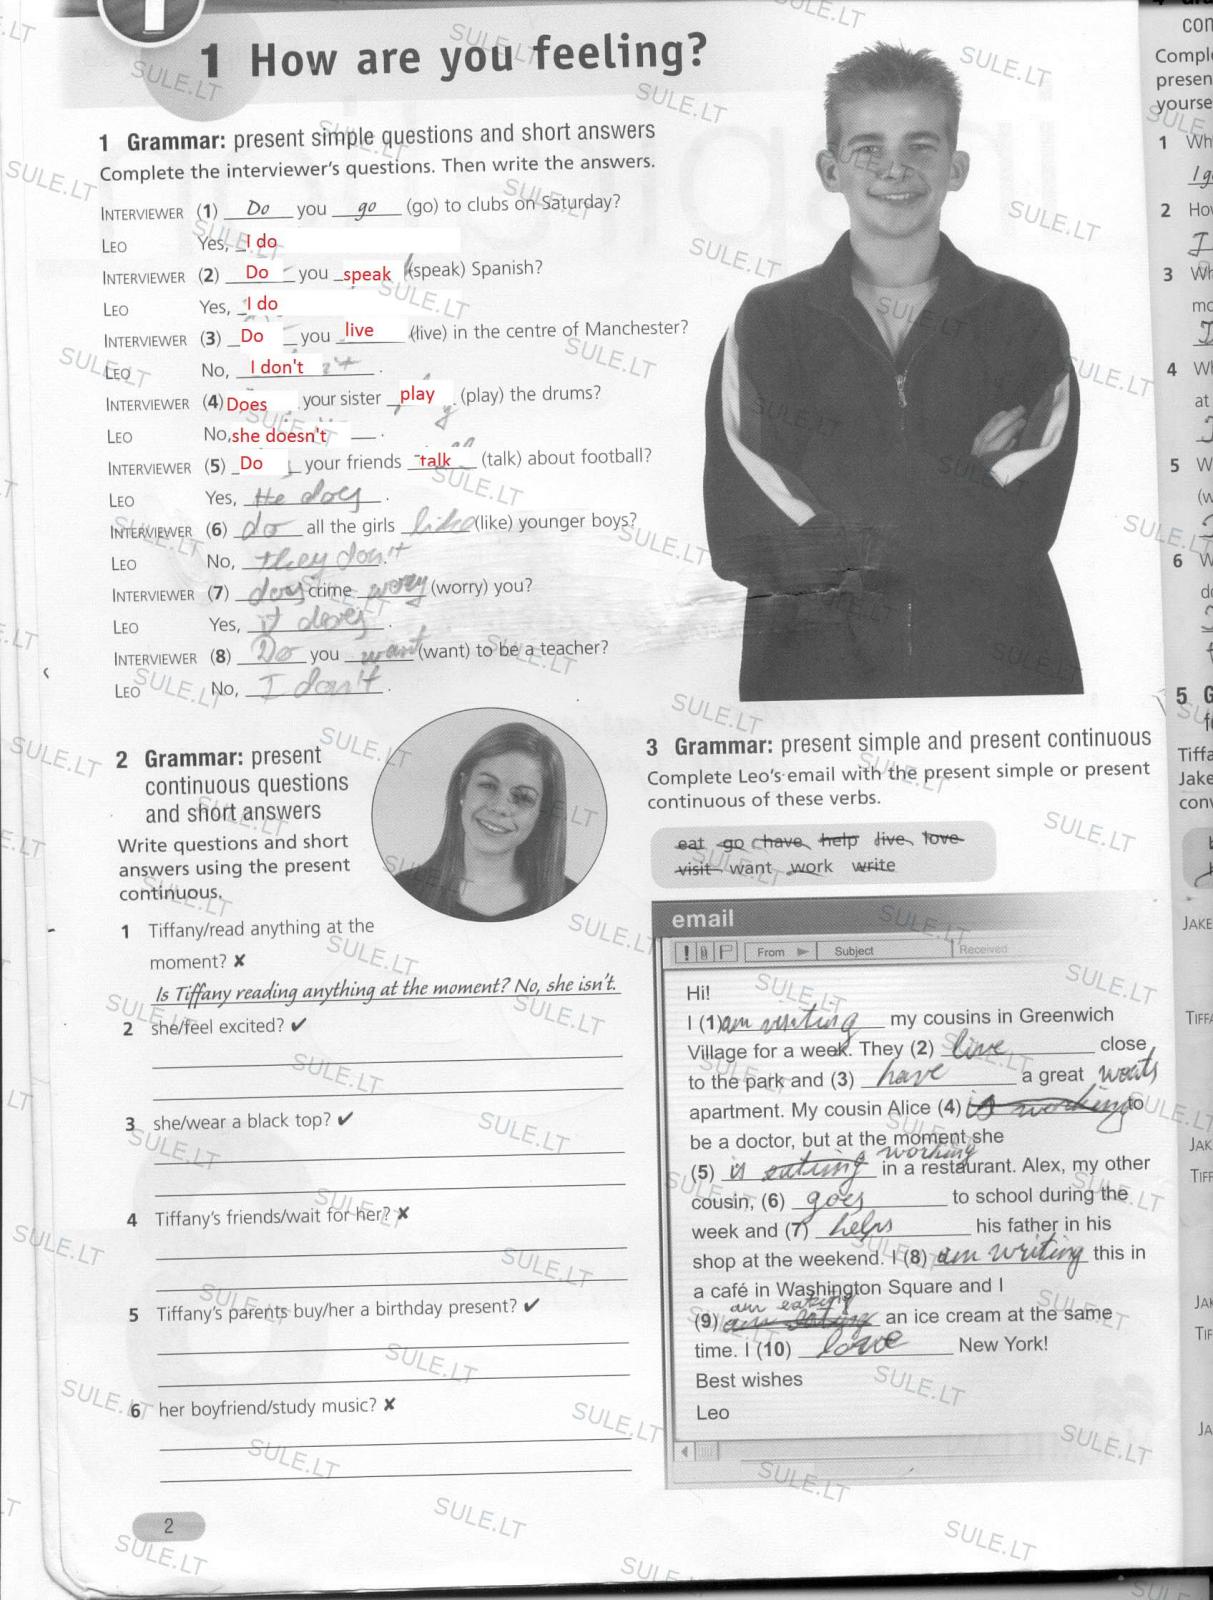 1 How are you feeling?
1 Grammar: present simple questions and short answers
Complete the interviewer's questions. Then write the answers.
INTERVIEWER (1) Do you go (go) to clubs on Saturday?
LEO Yes, I do
INTERVIEWER (2) Do you speak (speak) Spanish?
LEO Yes, I do
INTERVIEWER (3) Do you live (live) in the centre of Manchester?
LEO No, I don't.
INTERVIEWER (4) Does your sister play (play) the drums?
LEO No, she doesn't.
INTERVIEWER (5) Do your friends talk (talk) about football?
LEO Yes, He does.
INTERVIEWER (6) do all the girls like (like) younger boys?
LEO No, they don't.
INTERVIEWER (7) does crime wory (worry) you?
LEO Yes, it does.
INTERVIEWER (8) Do you want (want) to be a teacher?
LEO No, I don't.
2 Grammar: present
continuous questions
and short answers
Write questions and short
answers using the present
continuous.
1 Tiffany/read anything at the
moment? ✘
Is Tiffany reading anything at the moment? No, she isn't.
2 she/feel excited? ✔
3 she/wear a black top? ✔
4 Tiffany's friends/wait for her? ✘
5 Tiffany's parents buy/her a birthday present? ✔
6 her boyfriend/study music? ✘
2
3 Grammar: present simple and present continuous
Complete Leo's email with the present simple or present
continuous of these verbs.
eat go have help live love
visit want work write
email
! From Subject Received
Hi!
I (1) am visiting my cousins in Greenwich
Village for a week. They (2) live close
to the park and (3) have a great wants
apartment. My cousin Alice (4) is working to
be a doctor, but at the moment she
working
(5) is eating in a restaurant. Alex, my other
cousin, (6) goes to school during the
week and (7) helps his father in his
shop at the weekend. I (8) am writing this in
a café in Washington Square and I
am eating
(9) am eating an ice cream at the same
time. I (10) love New York!
Best wishes
Leo
SULE.LT